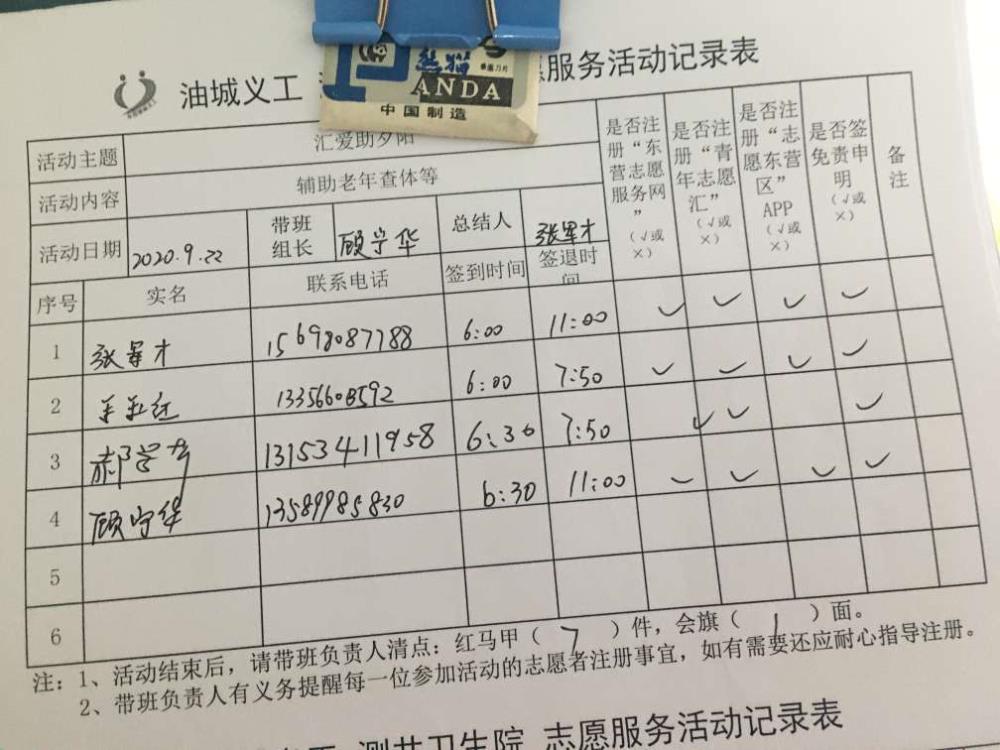 熊猫
PANDA
中国制造
油城义工 愿服务活动记录表
活动主题 汇爱助夕阳 是否注册“东营志愿服务网”（√或×） 是否注册“青年志愿汇”（√或×） 是否注册“志愿东营区”APP（√或×） 是否签免责申明（√或×） 备注
活动内容 辅助老年查体等
活动日期 2020.9.22 带班组长 顾宁华 总结人 张军才
序号 实名 联系电话 签到时间 签退时间
1 张军才 15698087788 6:00 11:00 ✓ ✓ ✓ ✓
2 13356608592 6:00 7:50 ✓ ✓ ✓ ✓
3 郝 13153411958 6:30 7:50 ✓ ✓ ✓
4 顾宁华 13589985830 6:30 11:00 ✓ ✓ ✓ ✓
5
6
注：1、活动结束后，请带班负责人清点：红马甲（ 7 ）件，会旗（ 1 ）面。
2、带班负责人有义务提醒每一位参加活动的志愿者注册事宜，如有需要还应耐心指导注册。
卫生院 志愿服务活动记录表